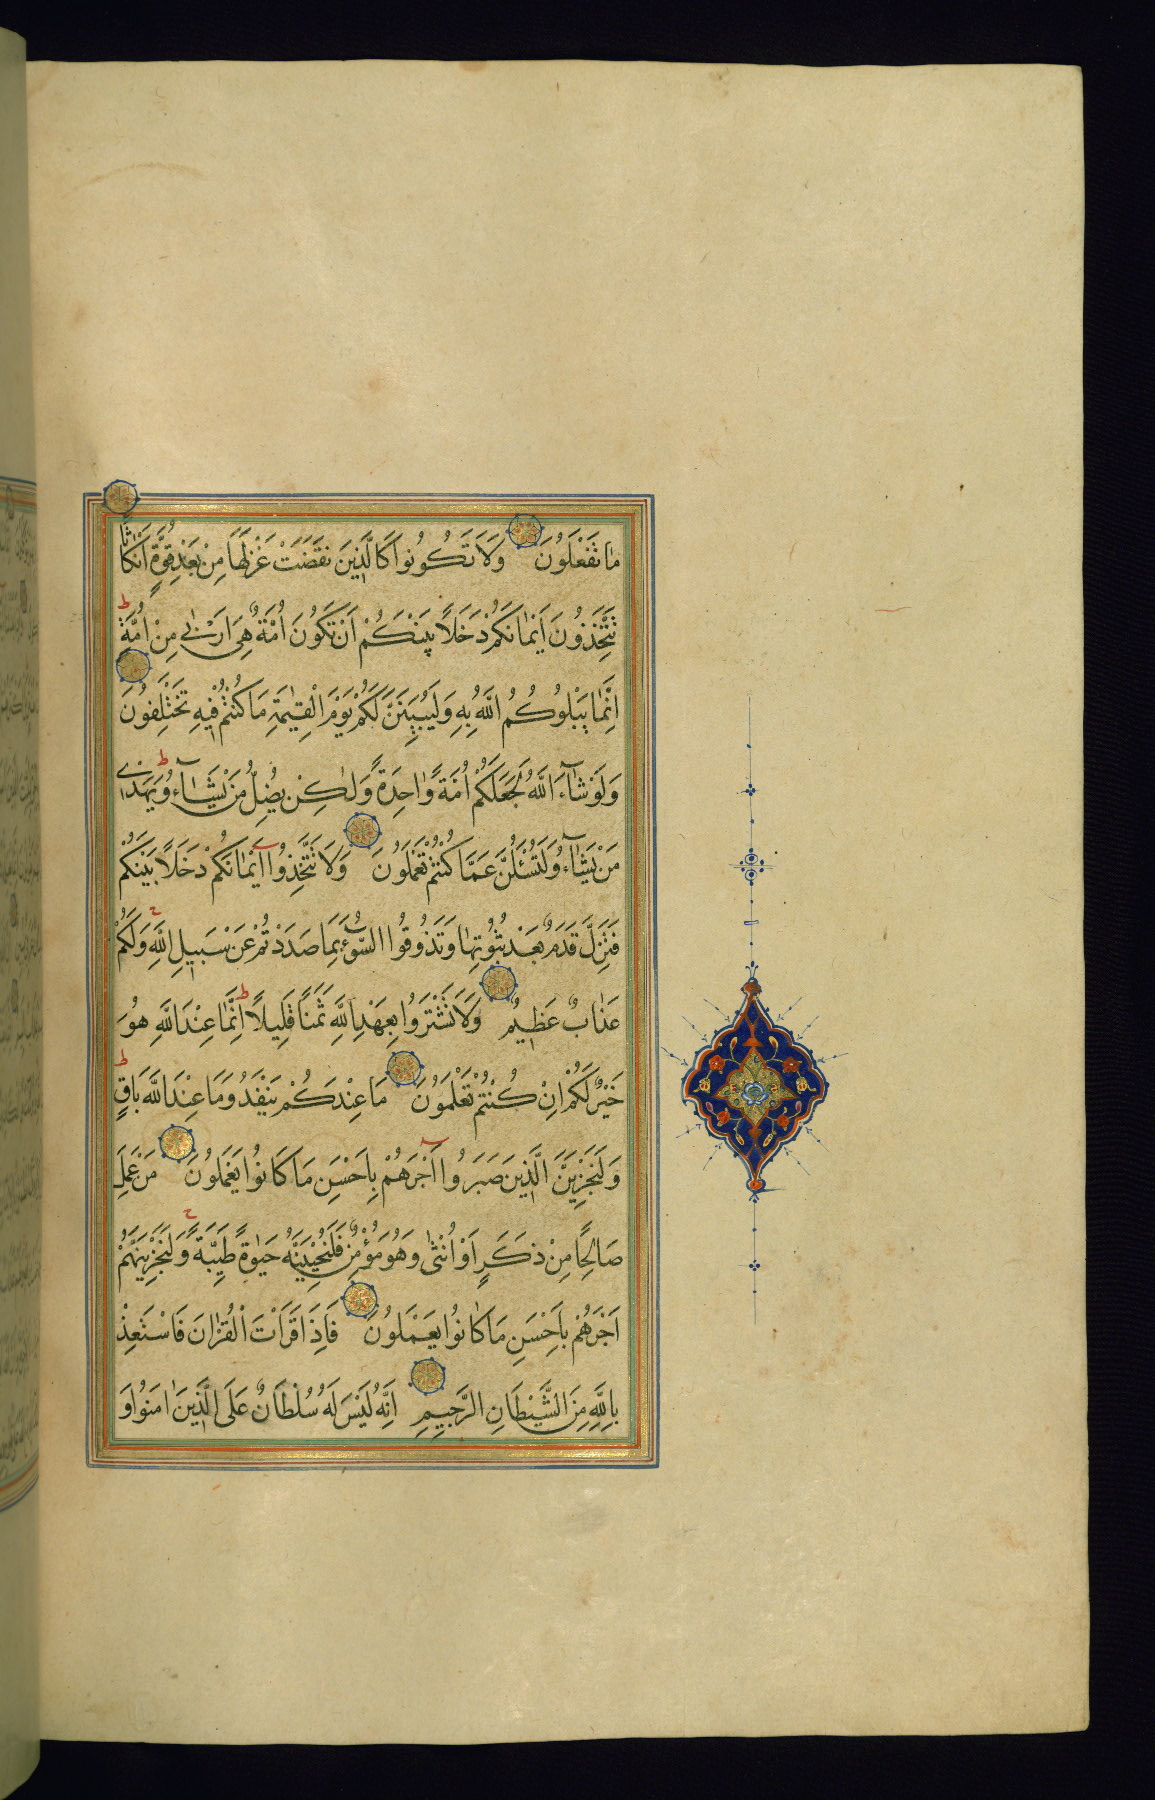 مَا تَفْعَلُونَ وَلَا تَكُونُوا كَالَّذِينَ نَقَضَتْ غَزْلَهَا مِنْ بَعْدِ قُوَّةٍ اَنْكَاثًا
تَتَّخِذُونَ اَيْمَانَكُمْ دَخَلًا بَيْنَكُمْ اَنْ تَكُونَ اُمَّةٌ هِيَ اَرْبٰى مِنْ اُمَّةٍ ط
اِنَّمَا يَبْلُوكُمُ اللَّهُ بِهِ وَلَيُبَيِّنَنَّ لَكُمْ يَوْمَ الْقِيٰمَةِ مَا كُنْتُمْ فِيهِ تَخْتَلِفُونَ
وَلَوْ شَآءَ اللَّهُ لَجَعَلَكُمْ اُمَّةً وَاحِدَةً وَلٰكِنْ يُضِلُّ مَنْ يَشَآءُ وَيَهْدِي ط
مَنْ يَشَآءُ وَلَتُسْئَلُنَّ عَمَّا كُنْتُمْ تَعْمَلُونَ وَلَا تَتَّخِذُوا اَيْمَانَكُمْ دَخَلًا بَيْنَكُمْ
فَتَزِلَّ قَدَمٌ بَعْدَ ثُبُوتِهَا وَتَذُوقُوا السُّوٓءَ بِمَا صَدَدْتُمْ عَنْ سَبِيلِ اللَّهِ ج وَلَكُمْ
عَذَابٌ عَظِيمٌ وَلَا تَشْتَرُوا بِعَهْدِ اللَّهِ ثَمَنًا قَلِيلًا ط اِنَّمَا عِنْدَ اللَّهِ هُوَ
خَيْرٌ لَكُمْ اِنْ كُنْتُمْ تَعْلَمُونَ مَا عِنْدَكُمْ يَنْفَدُ وَمَا عِنْدَ اللَّهِ بَاقٍ ط
وَلَنَجْزِيَنَّ الَّذِينَ صَبَرُوا اَجْرَهُمْ بِاَحْسَنِ مَا كَانُوا يَعْمَلُونَ مَنْ عَمِلَ
صَالِحًا مِنْ ذَكَرٍ اَوْ اُنْثٰى وَهُوَ مُؤْمِنٌ فَلَنُحْيِيَنَّهُ حَيٰوةً طَيِّبَةً ج وَلَنَجْزِيَنَّهُمْ
اَجْرَهُمْ بِاَحْسَنِ مَا كَانُوا يَعْمَلُونَ فَاِذَا قَرَاْتَ الْقُرْاٰنَ فَاسْتَعِذْ
بِاللَّهِ مِنَ الشَّيْطَانِ الرَّجِيمِ اِنَّهُ لَيْسَ لَهُ سُلْطَانٌ عَلَى الَّذِينَ اٰمَنُوا وَ